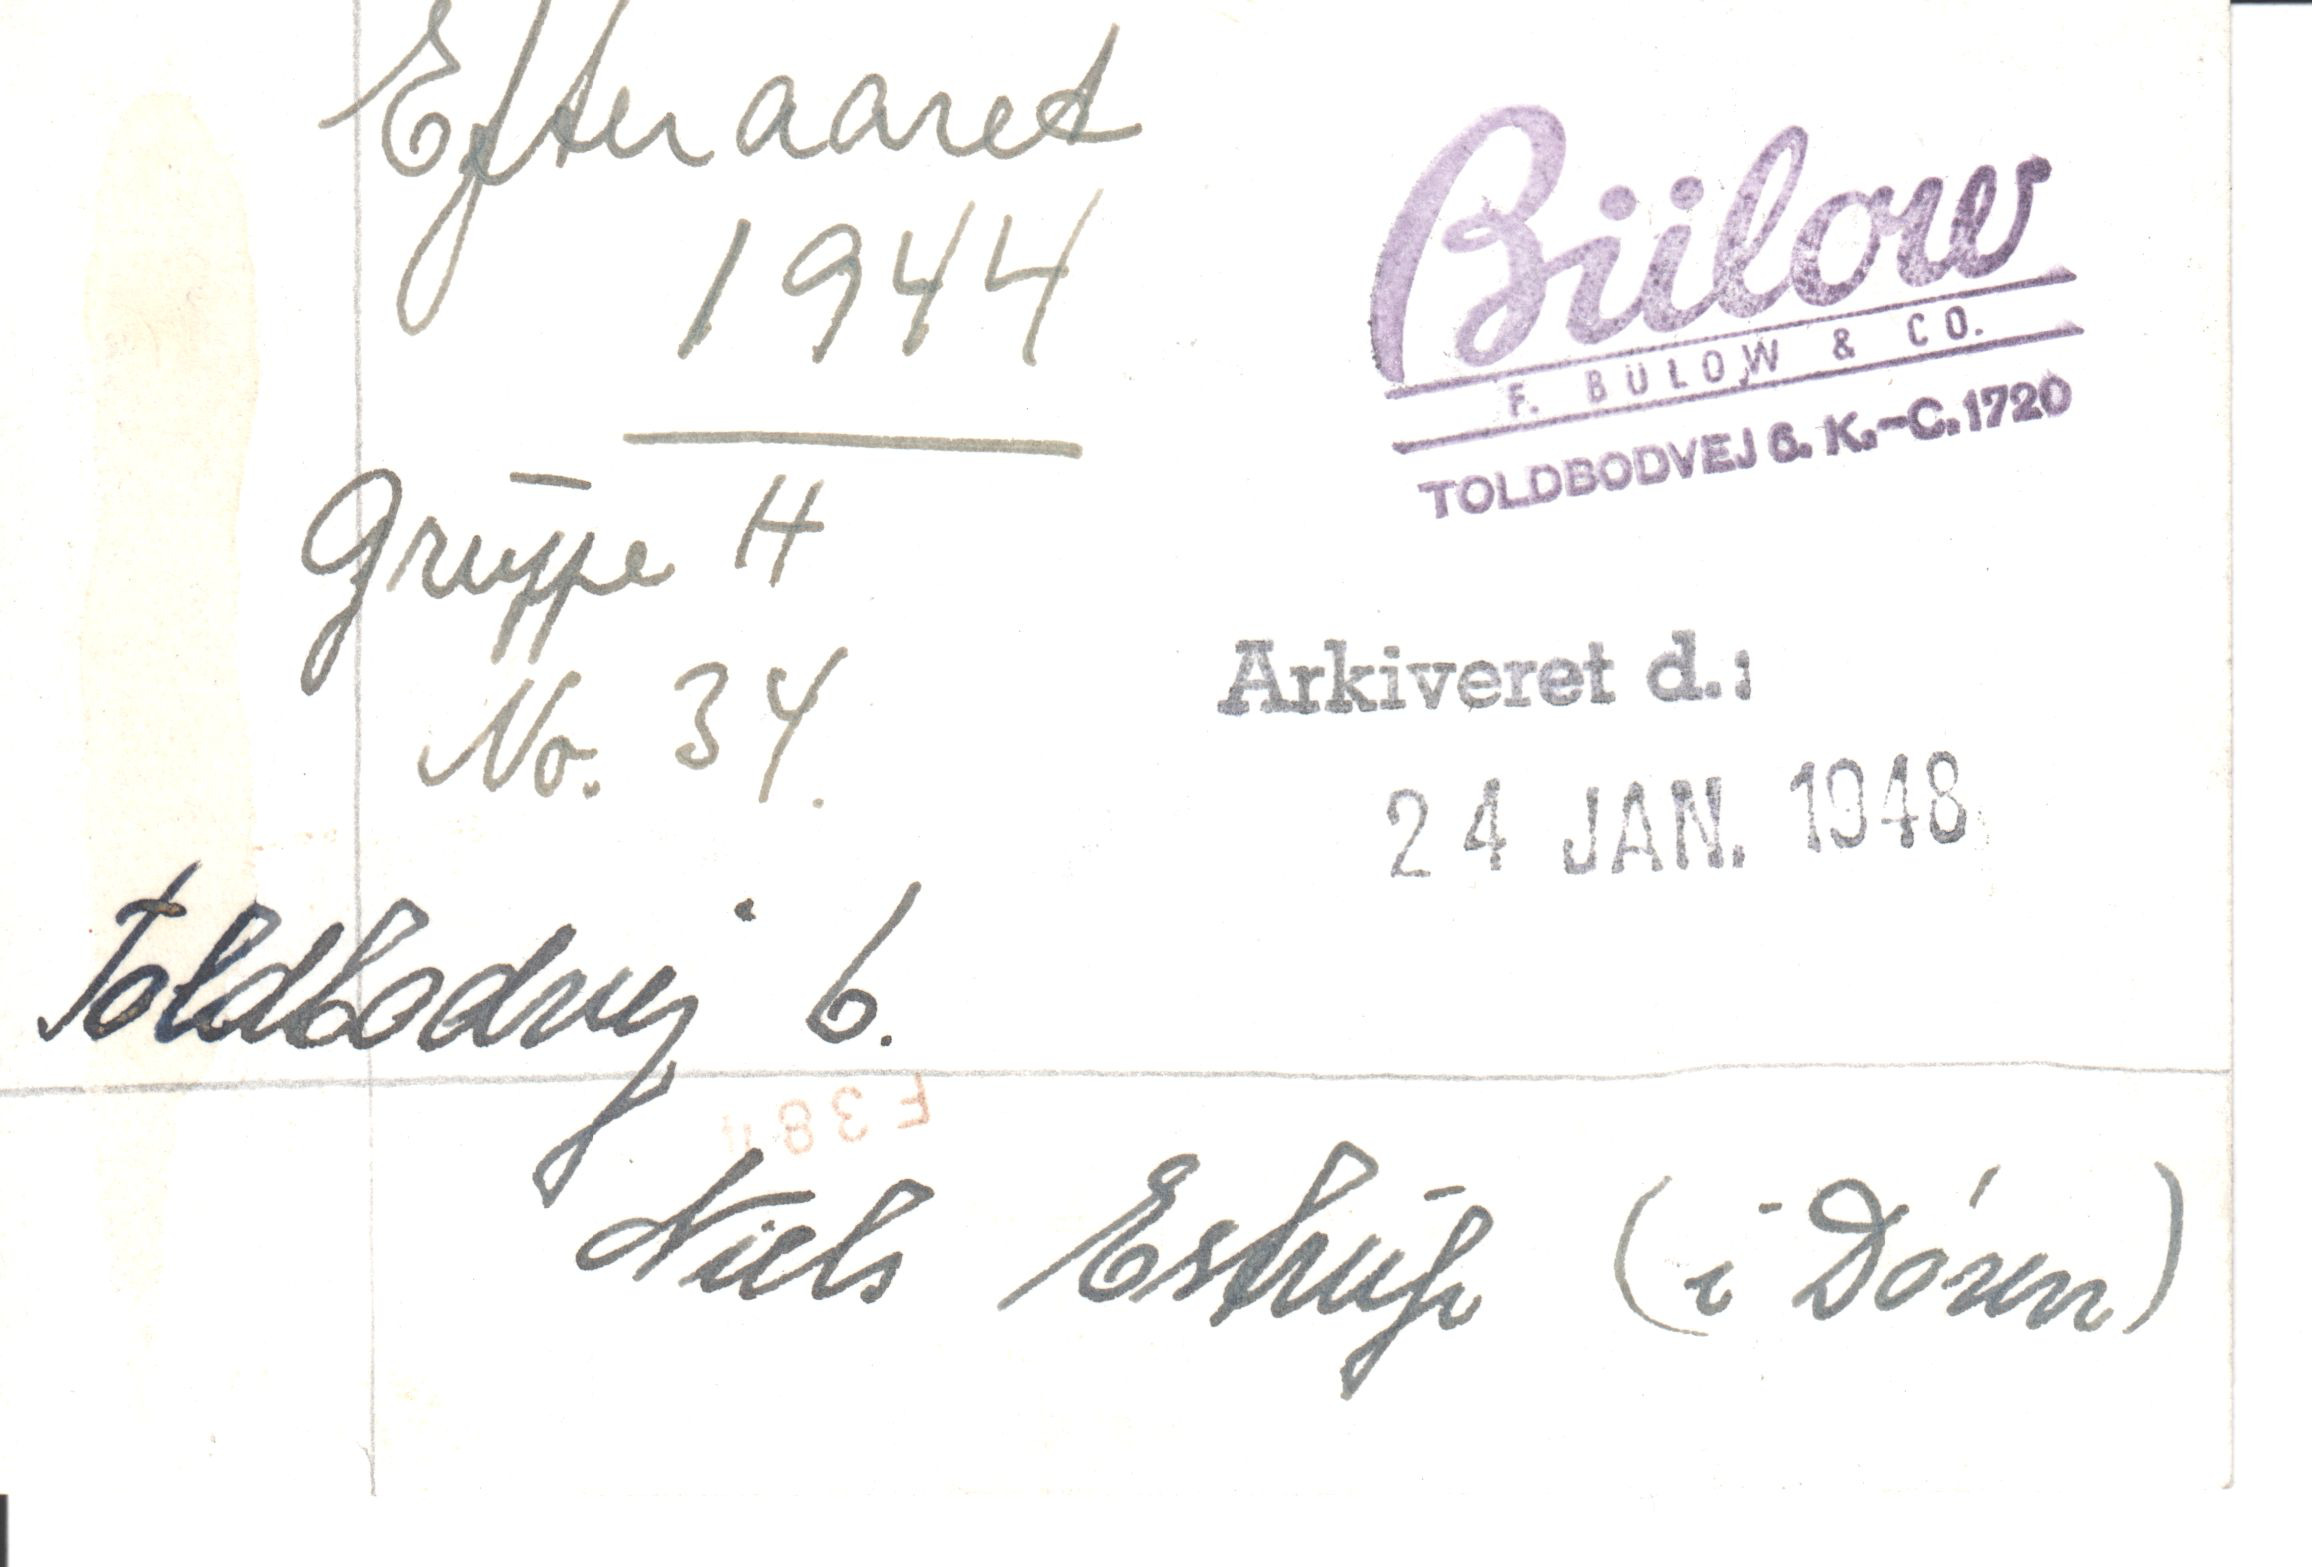 Efteraaret
1944
Gruppe H
No. 34.
Toldbodvej 6.
Niels Estrup (i Døren)
Bülow
F. BÜLOW & CO.
TOLDBODVEJ 6. K.-C. 1720
Arkiveret d.:
24 JAN. 1948
F 38